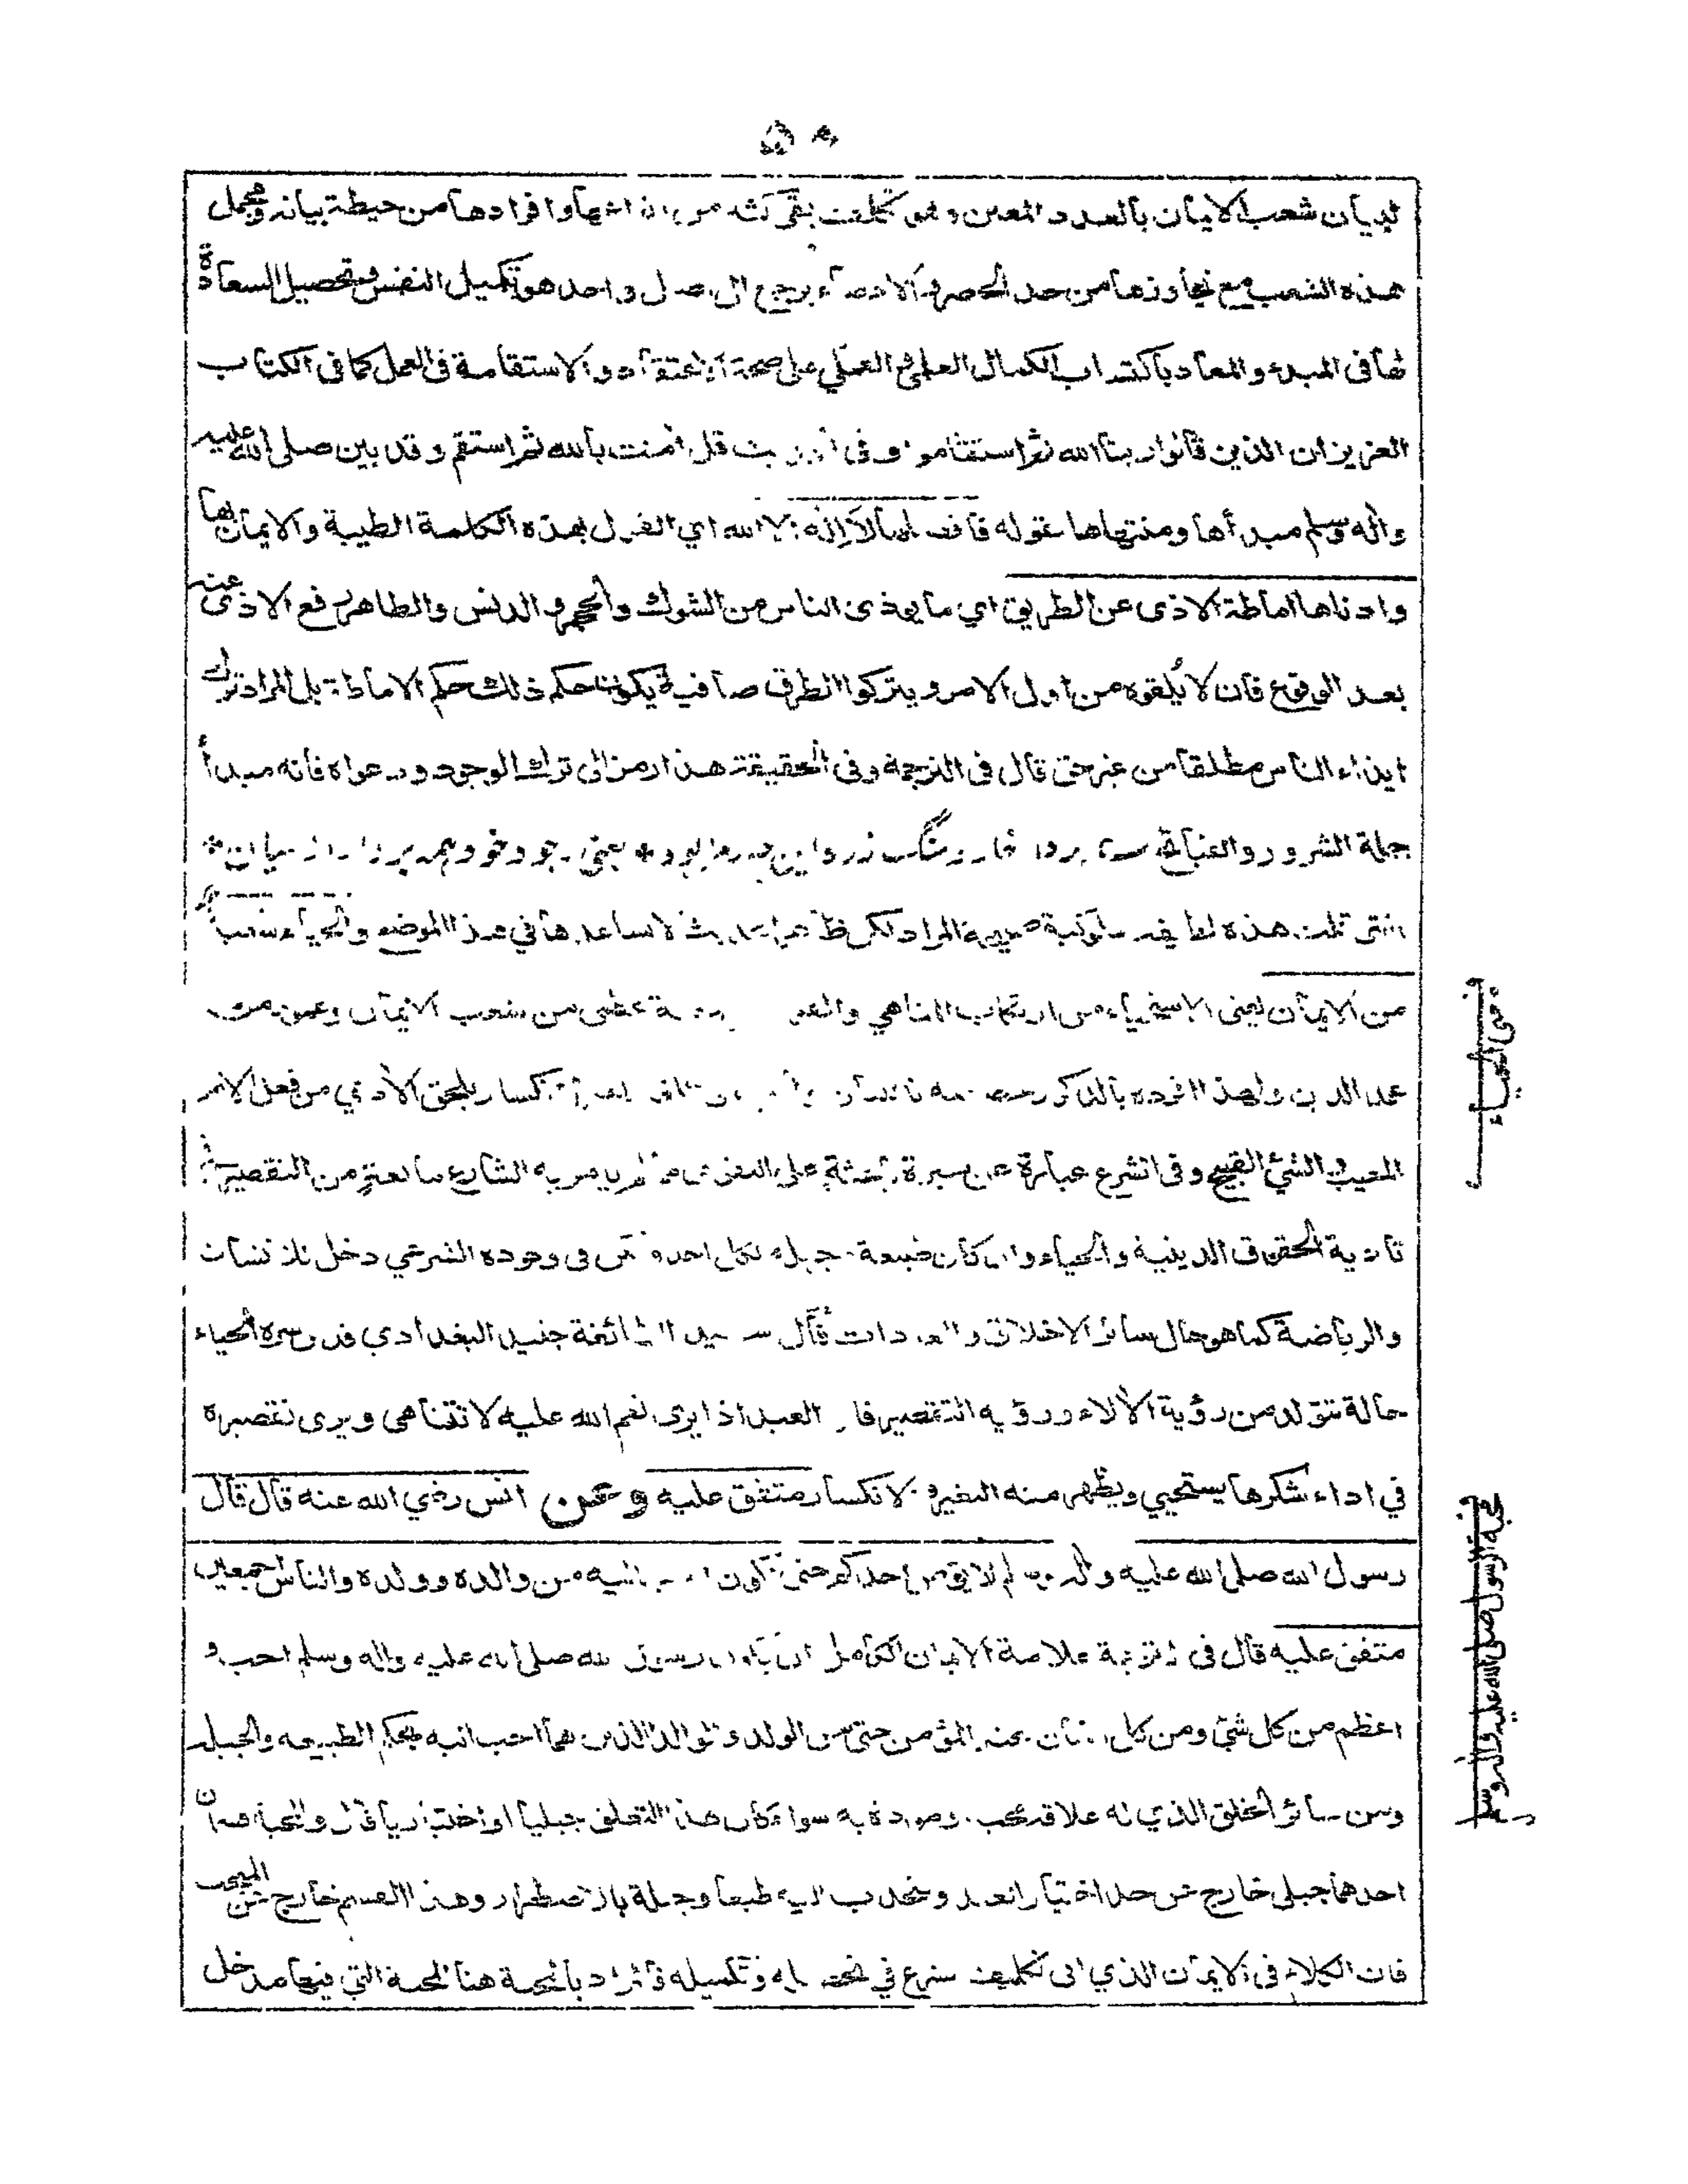 لبيان شعب الايمان بالعدد المعين تكلف بقى انواعها وافرادها من حيطة بيانه ومجمل
هذه الشعب مع تجاوزها من حد الحصر والاحصاء يرجع الى اصل واحد هو تكميل النفس وتحصيل السعادة
لها فى المبدء والمعاد باكتساب الكمال العلمي والعملي على صحة الاعتقاد والاستقامة فى العمل كما فى الكتاب
العزيز ان الذين قالوا ربنا الله ثم استقاموا وفى الحديث قل امنت بالله ثم استقم وقد بين صلى الله عليه
واله وسلم مبدأها ومنتهاها بقوله فافضلها لا اله الا الله اي القول بهذه الكلمة الطيبة والايمان بها
وادناها اماطة الاذى عن الطريق اي ما يوذى الناس من الشوك والحجر والدنس والطاهر رفع الاذى عنه
بعد الوقوع فان لا يُلقوه من اول الامر ويتركوا الطرق صافية يكون حكم ذلك حكم الاماطة بل المراد ترك
ايذاء الناس مطلقا من غير حق قال فى الترجمة وفى الحقيقة هذا رمز الى ترك الوجود ودعواه فانه مبدأ
جملة الشرور والقبائح بردار خار وسنگ زره اين بود * يعنى وجود خود همه بردار از ميان *
قلت هذه لطيفة سلوكية صحيحة المراد لكن ظاهر الحديث لا يساعدها في هذا الموضع والحياء شعبة
من الايمان يعنى الاستحياء من ارتكاب المناهي شعبة عظمى من شعب الايمان وعمدة من
عمد الدين ولهذا افرده بالذكر انكسار يلحق الأدمي من فعل الامر
المعيب والشئ القبيح وفى الشرع عبارة عن سيرة باعثة على التفزي يامر به الشارع مانعة من التقصير في
تادية الحقوق الدينية والحياء وان كان طبيعة جبلة لكل احد فى وجوده الشرعي دخل للاكتساب
والرياضة كما هو حال سائر الاخلاق والعادات قال سيد الطائفة جنيد البغدادي قدس سره الحياء
حالة تتولد من رؤية الألاء ورؤية التقصير فان العبد اذا يرى نعم الله عليه لا تتناهى ويرى تقصيره
في اداء شكرها يستحيي ويظهر منه التغير والانكسار متفق عليه وعن انس رضي الله عنه قال قال
رسول الله صلى الله عليه واله وسلم لا يؤمن احدكم حتى اكون احب اليه من والده وولده والناس اجمعين
متفق عليه قال فى الترجمة علامة الايمان الكامل ان يكون رسول الله صلى الله عليه واله وسلم احب و
اعظم من كل شئ ومن كل انسان عند المؤمن حتى من الولد والوالد الذين هما احب اليه بحكم الطبيعة والجبلة
ومن سائر الخلق الذي له علاقة بحب ومودة به سواء كان هذا التعلق جبليا او اختياريا قال والمحبة قسمان
احدهما جبلي خارج عن حد اختيار العبد وينجذب اليه طبعا وجبلة بالاضطرار وهذا القسم خارج عن المبحث
فان الكلام فى الايمان الذي اتى تكليف شرع في تحصيله وتكميله فالمراد بالمحبة هنا المحبة التي فيها مدخل
معنى الحياء
محبة الرسول صلى الله عليه واله وسلم